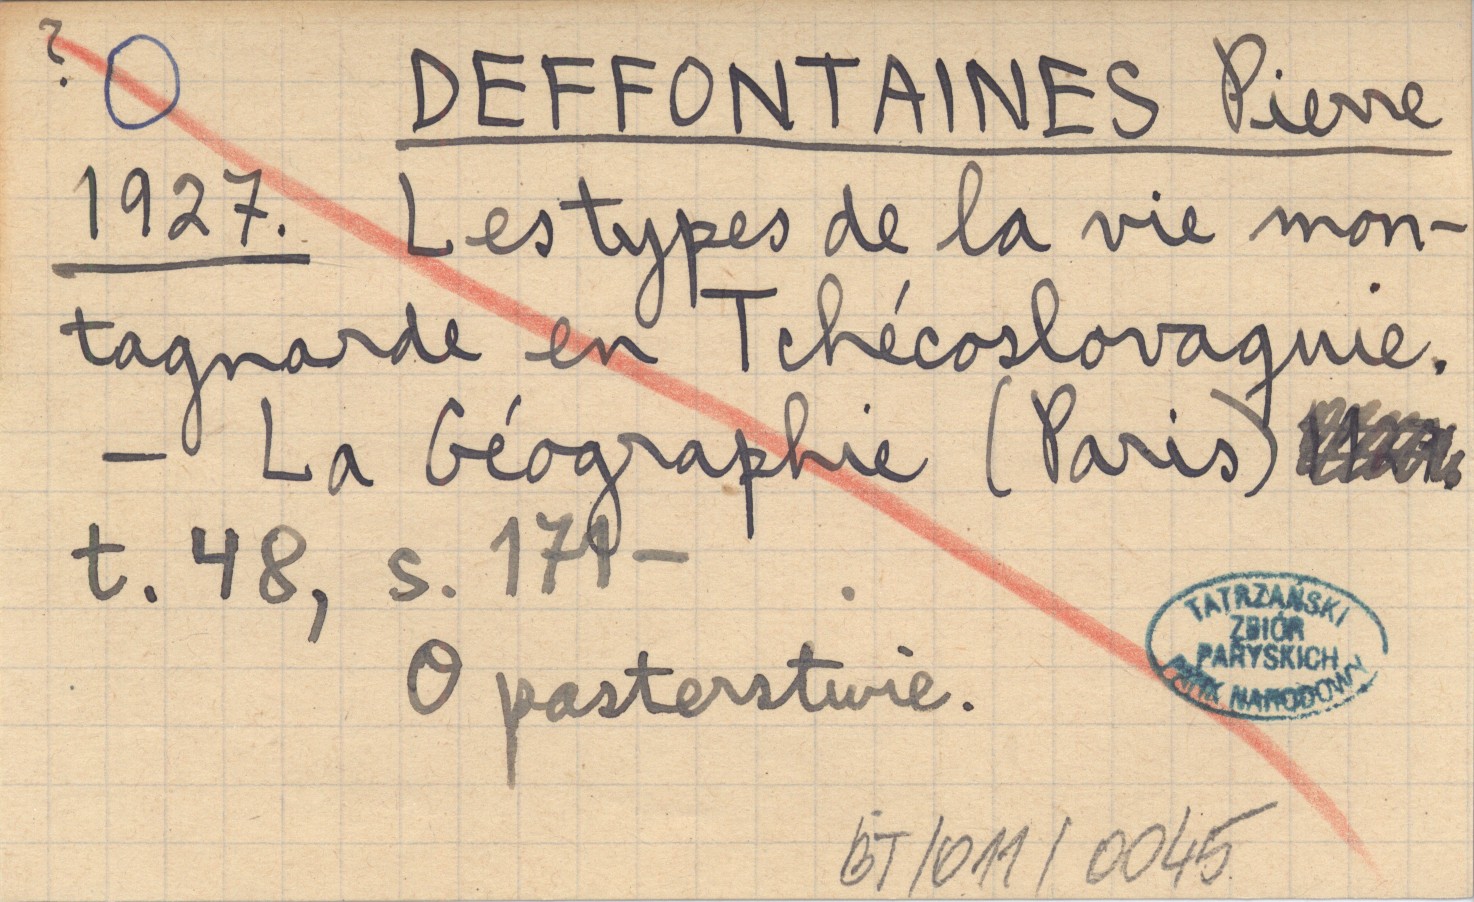 ?
DEFFONTAINES Pierre
1927. Les types de la vie mon-
tagnarde en Tchécoslovaquie.
— La Géographie (Paris)
t. 48, s. 171—
O pasterstwie.
TATRZAŃSKI
ZBIÓR
PARYSKICH
PARK NARODOWY
BT/011/0045